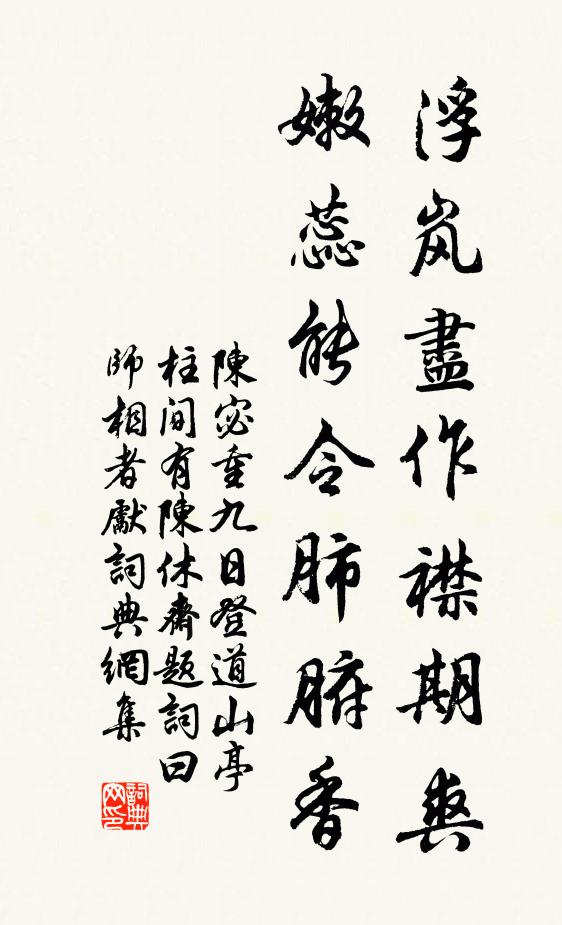 浮岚盡作襟期爽
嫩蕊能令肺腑香
陳宓重九日登道山亭
柱间有陳休齋題詞曰
師相者獻詞典網集
詞典网印